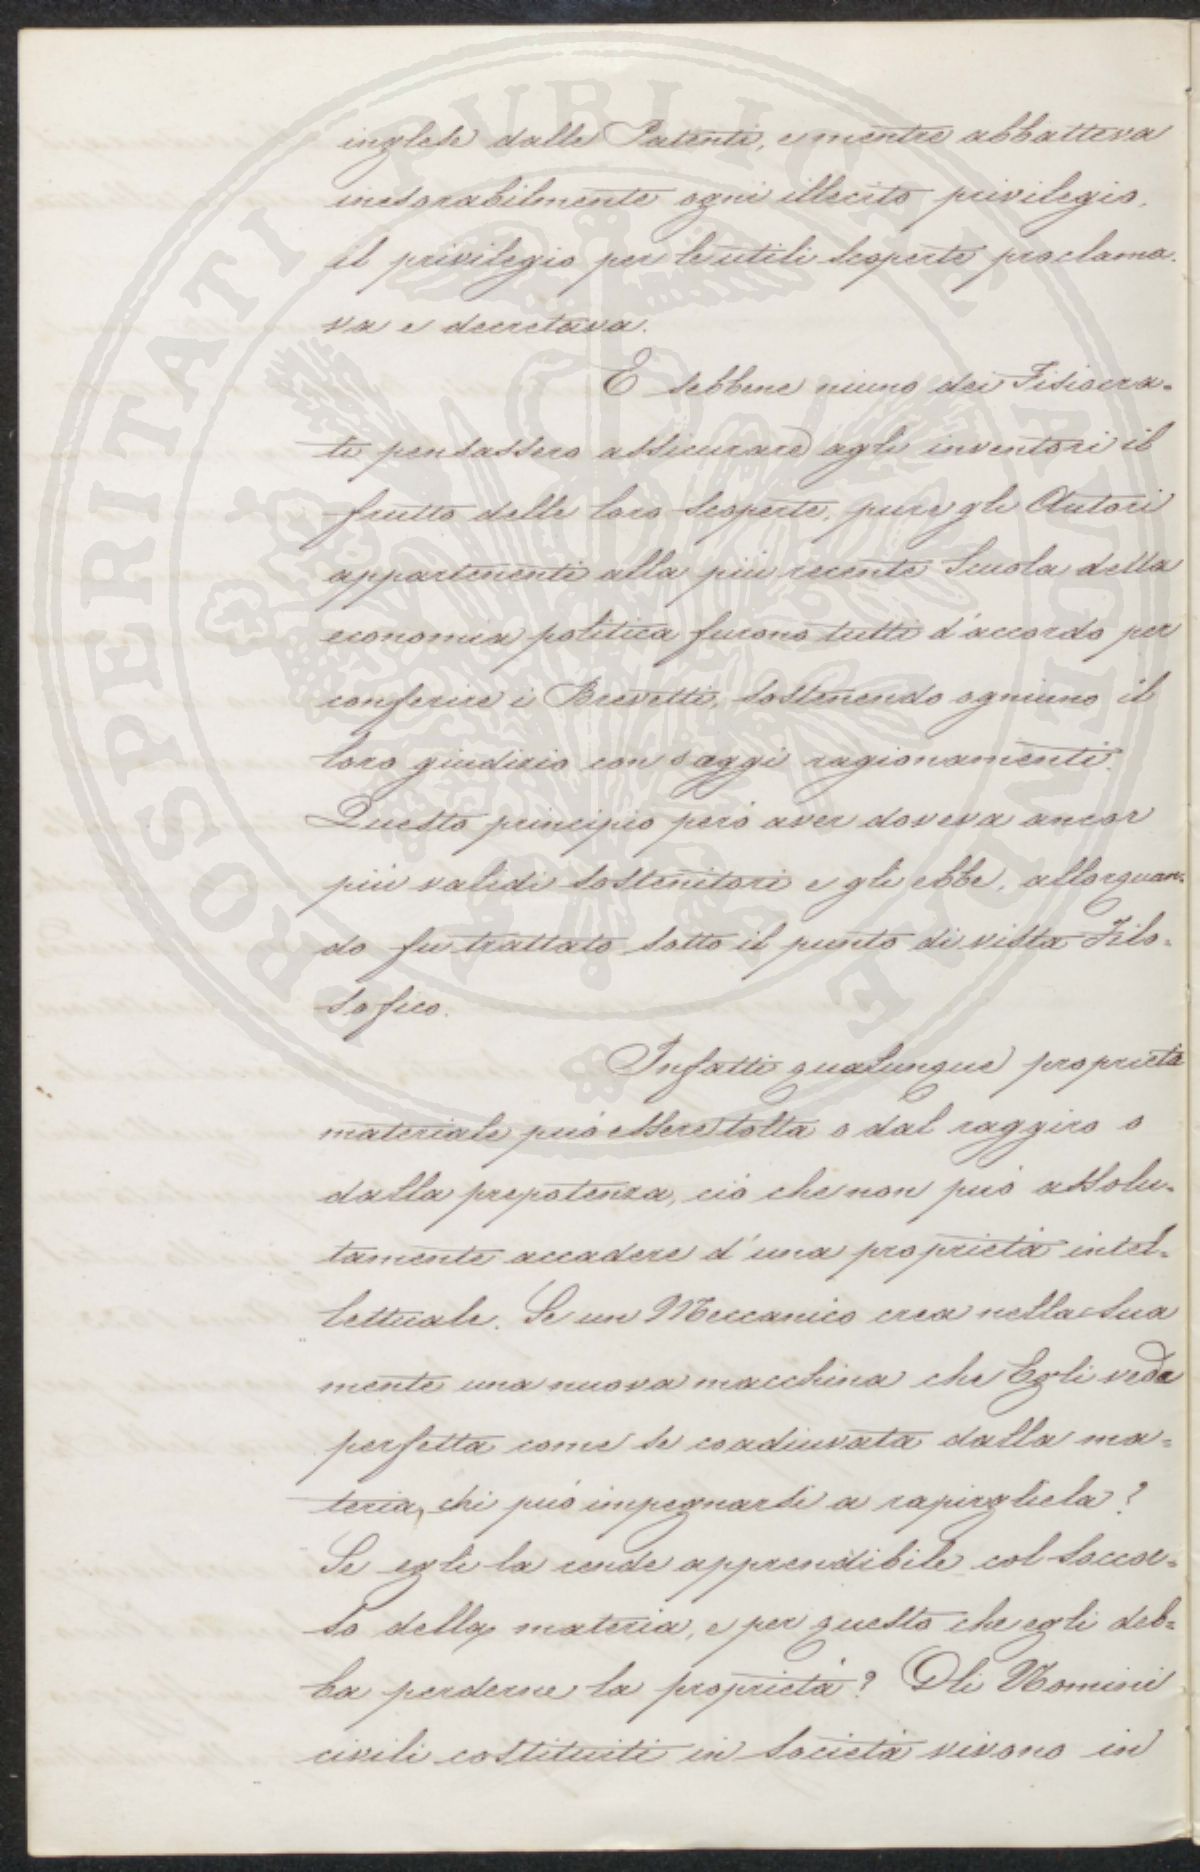 inglese dalle Patenti, e mentre abbatteva
inesorabilmente ogni illecito privilegio,
il privilegio per le utili scoperte proclama-
va e decretava.
E sebbene niuno dei Fisiocra-
ti pensassero assicurare agli inventori il
frutto delle loro scoperte, pure gli Autori
appartenenti alla più recente Scuola della
economia politica furono tutti d'accordo per
conferire i Brevetti, sostenendo ogniuno il
loro giudizio con saggi ragionamenti.
Questo principio però aver doveva ancor
più validi sostenitori e gli ebbe, allorquan-
do fu trattato sotto il punto di vista Filo-
sofico.
Infatti qualunque proprietà
materiale può essere tolta o dal raggiro o
dalla prepotenza, ciò che non può assolu-
tamente accadere d'una proprietà intel-
lettuale. Se un Meccanico crea nella sua
mente una nuova macchina che Egli vede
perfetta come se coadiuvata dalla ma-
teria, chi può impegnarsi a rapirgliela?
Se egli la rende apprendibile col soccor-
so della materia, e per questo che egli deb-
ba perderne la proprietà? Gli Uomini
civili costituiti in società vivono in
PROSPERITATI PVBLICAE AVGENDAE